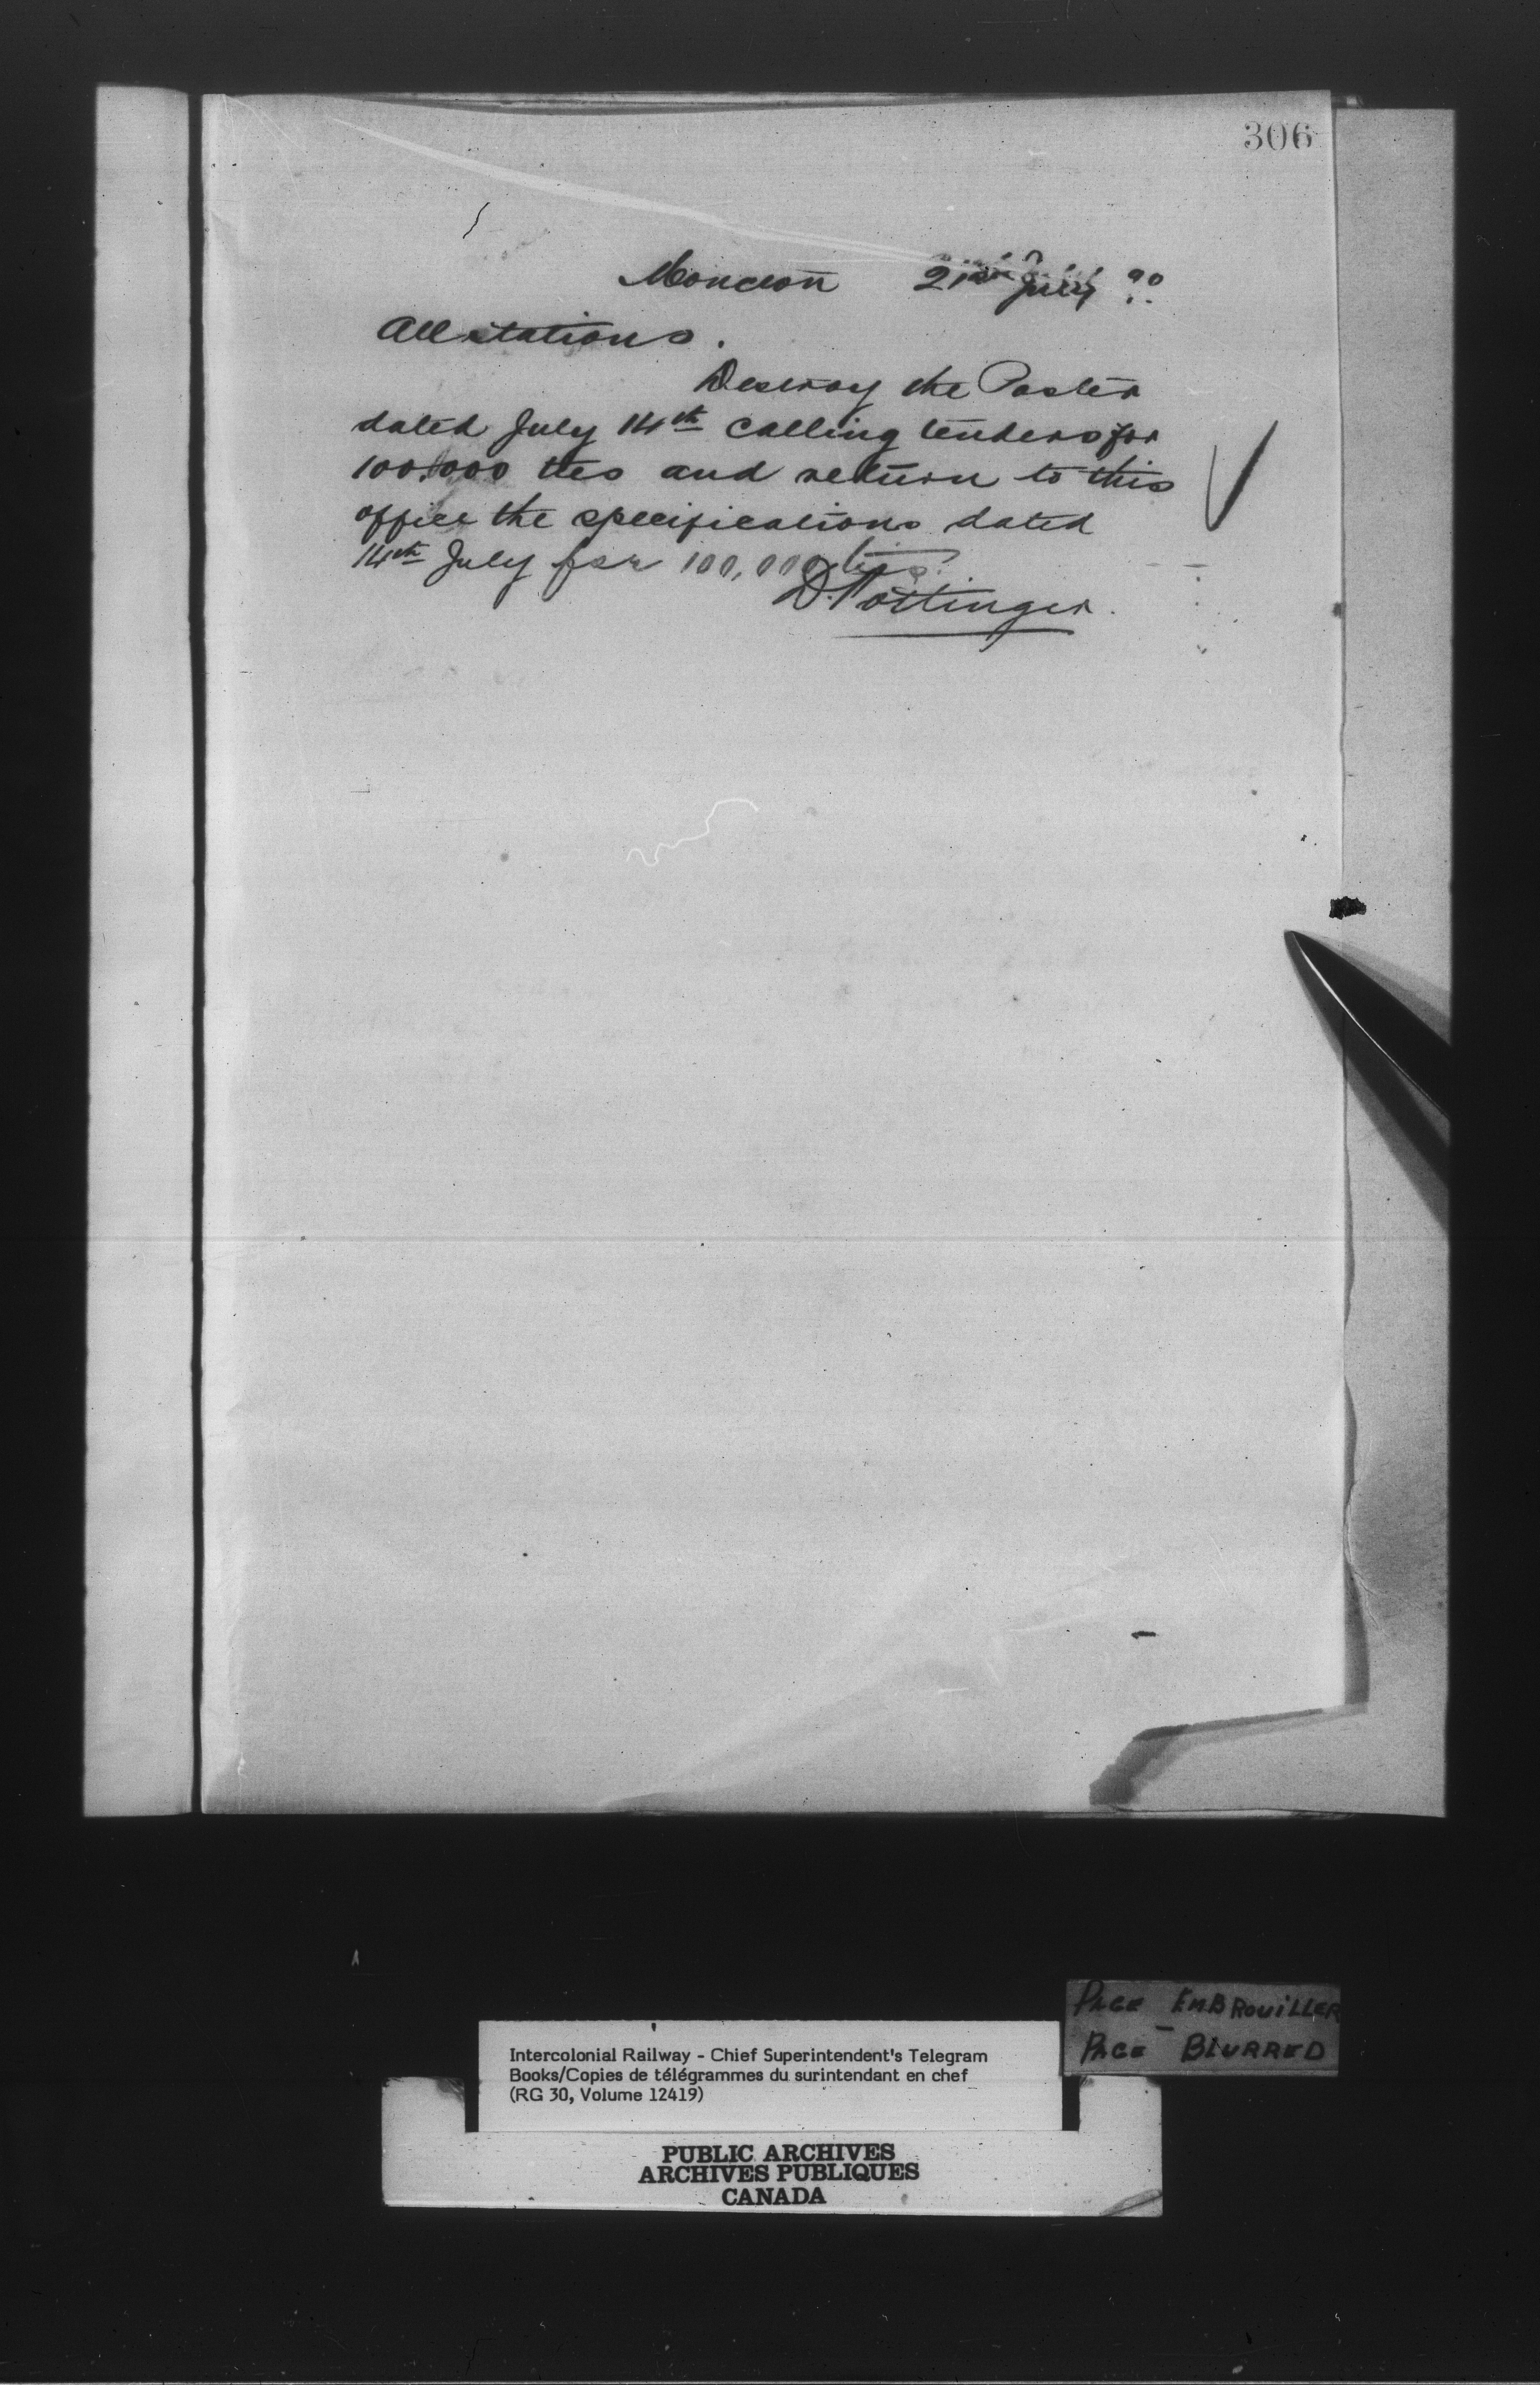 306
Moncton 21st July 90
All stations.
Destroy the Poster
dated July 14th calling tenders for
100,000 ties and return to this
office the specifications dated
14th July for 100,000 ties.
D. Pottinger.
PAGE EMBROUILLER
PAGE - BLURRED
Intercolonial Railway - Chief Superintendent's Telegram
Books/Copies de télégrammes du surintendant en chef
(RG 30, Volume 12419)
PUBLIC ARCHIVES
ARCHIVES PUBLIQUES
CANADA